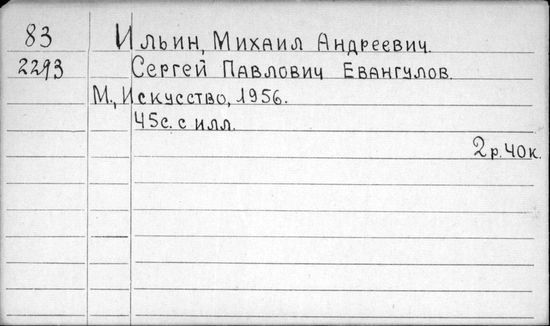 83 Ильин, Михаил Андреевич.
2293 Сергей Павлович Евангулов.
М., Искусство, 1956.
45с. с илл.
2р.40к.